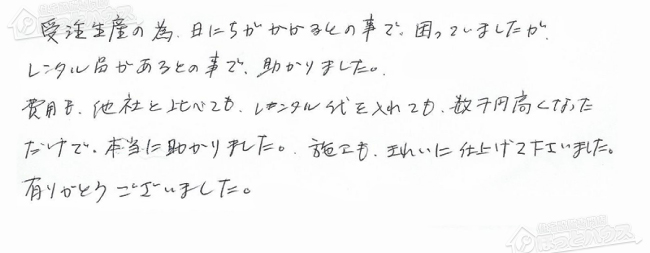 受注生産の為、日にちがかかるとの事で、困っていましたが、
レンタル品があるとの事で、助かりました。
費用も、他社と比べても、レンタル代を入れても、数千円高くなった
だけで、本当に助かりました。施工も、きれいに仕上げて下さいました。
有りがとうございました。